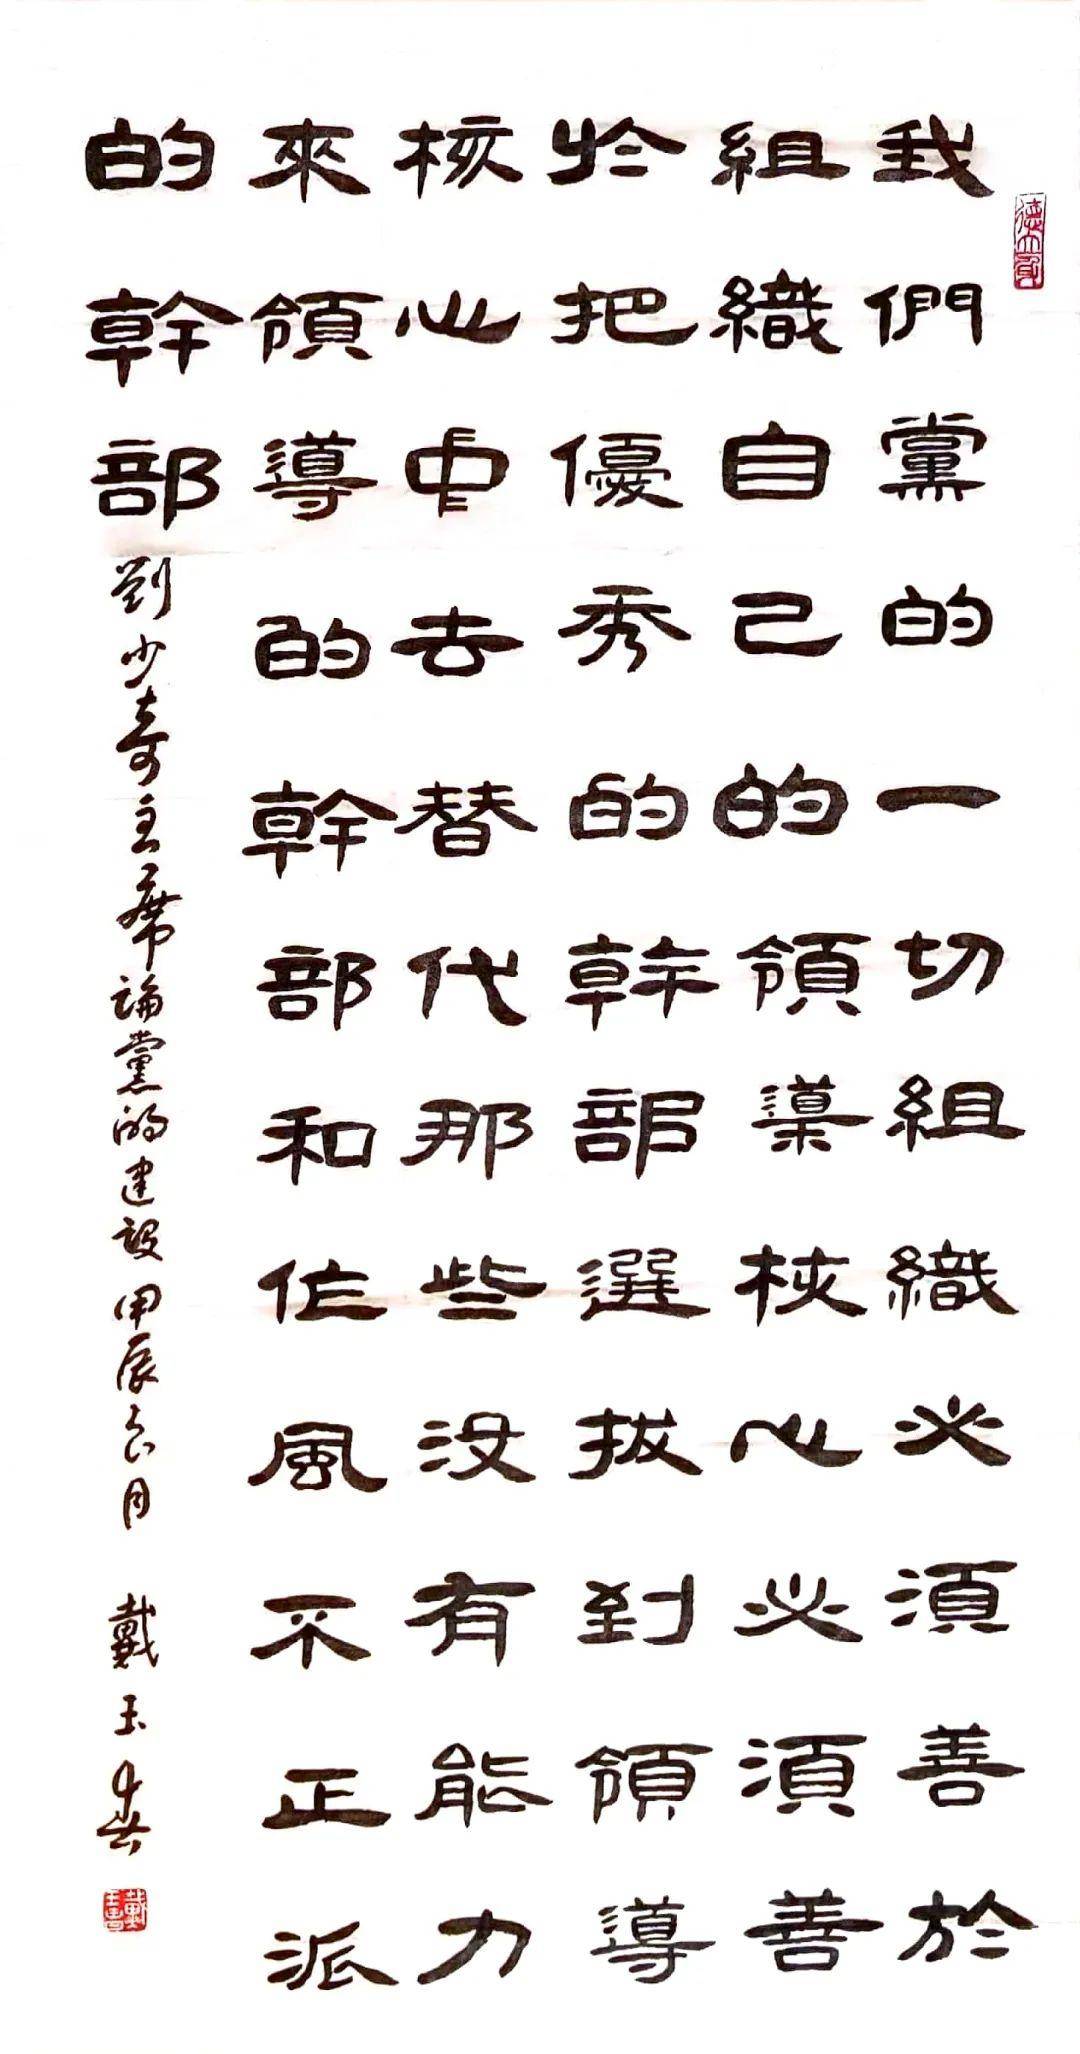 我們黨的一切組織必須善於
組織自己的領核心必須善
於把優秀的幹部選拔到領導
核心中去替代那些没有能力
來領導的幹部和作風不正派
的幹部
劉少奇主席論黨的建設甲辰月 戴玉